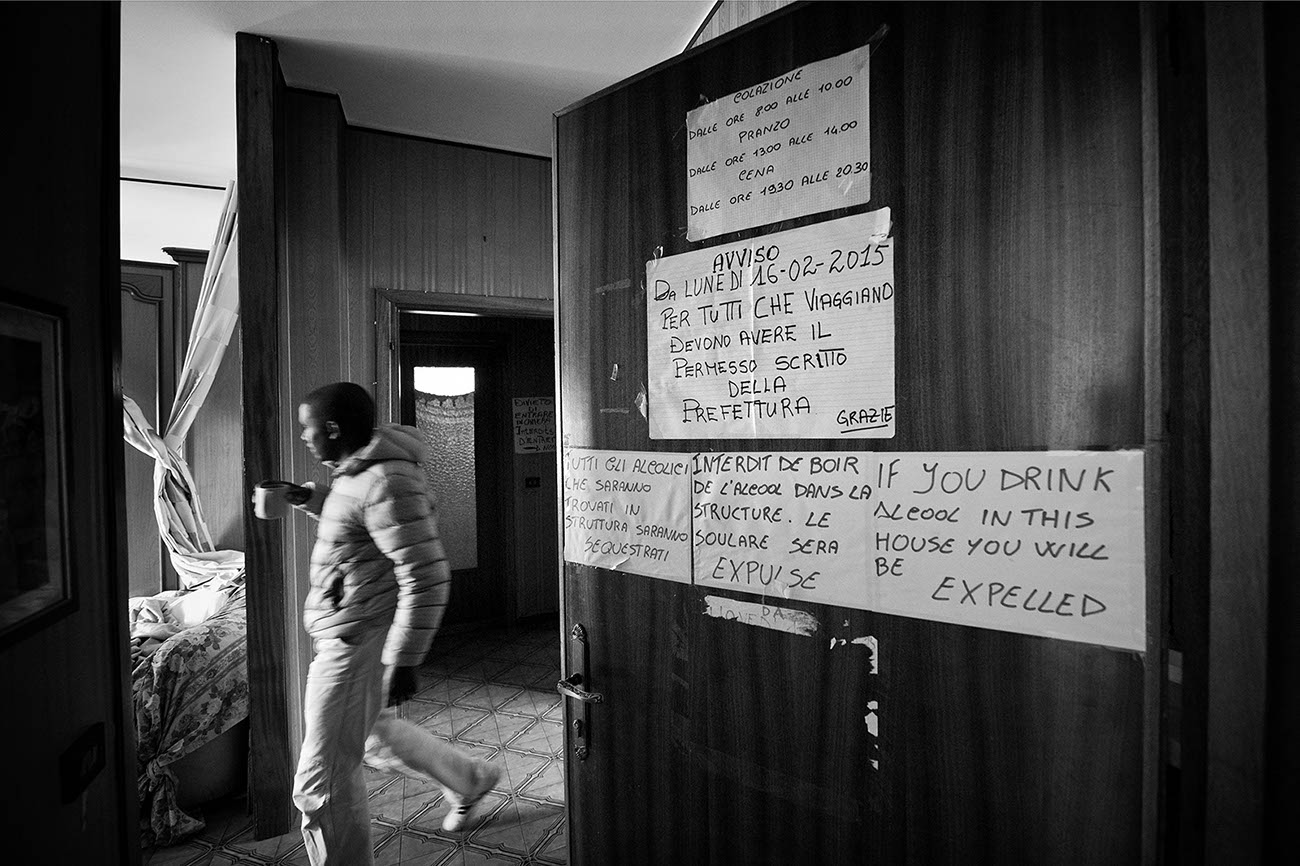 COLAZIONE
DALLE ORE 8.00 ALLE 10.00
PRANZO
DALLE ORE 1300 ALLE 14.00
CENA
DALLE ORE 1930 ALLE 20.30
AVVISO
DA LUNEDI 16-02-2015
PER TUTTI CHE VIAGGIANO
DEVONO AVERE IL
PERMESSO SCRITTO
DELLA
PREFETTURA
GRAZIE
TUTTI GLI ALCOLICI
CHE SARANNO
TROVATI IN
STRUTTURA SARANNO
SEQUESTRATI
INTERDIT DE BOIR
DE L'ALCOOL DANS LA
STRUCTURE. LE
SOULARE SERA
EXPULSE
IF YOU DRINK
ALCOOL IN THIS
HOUSE YOU WILL
BE
EXPELLED
DA
DIVIETO
DI
ENTRARE